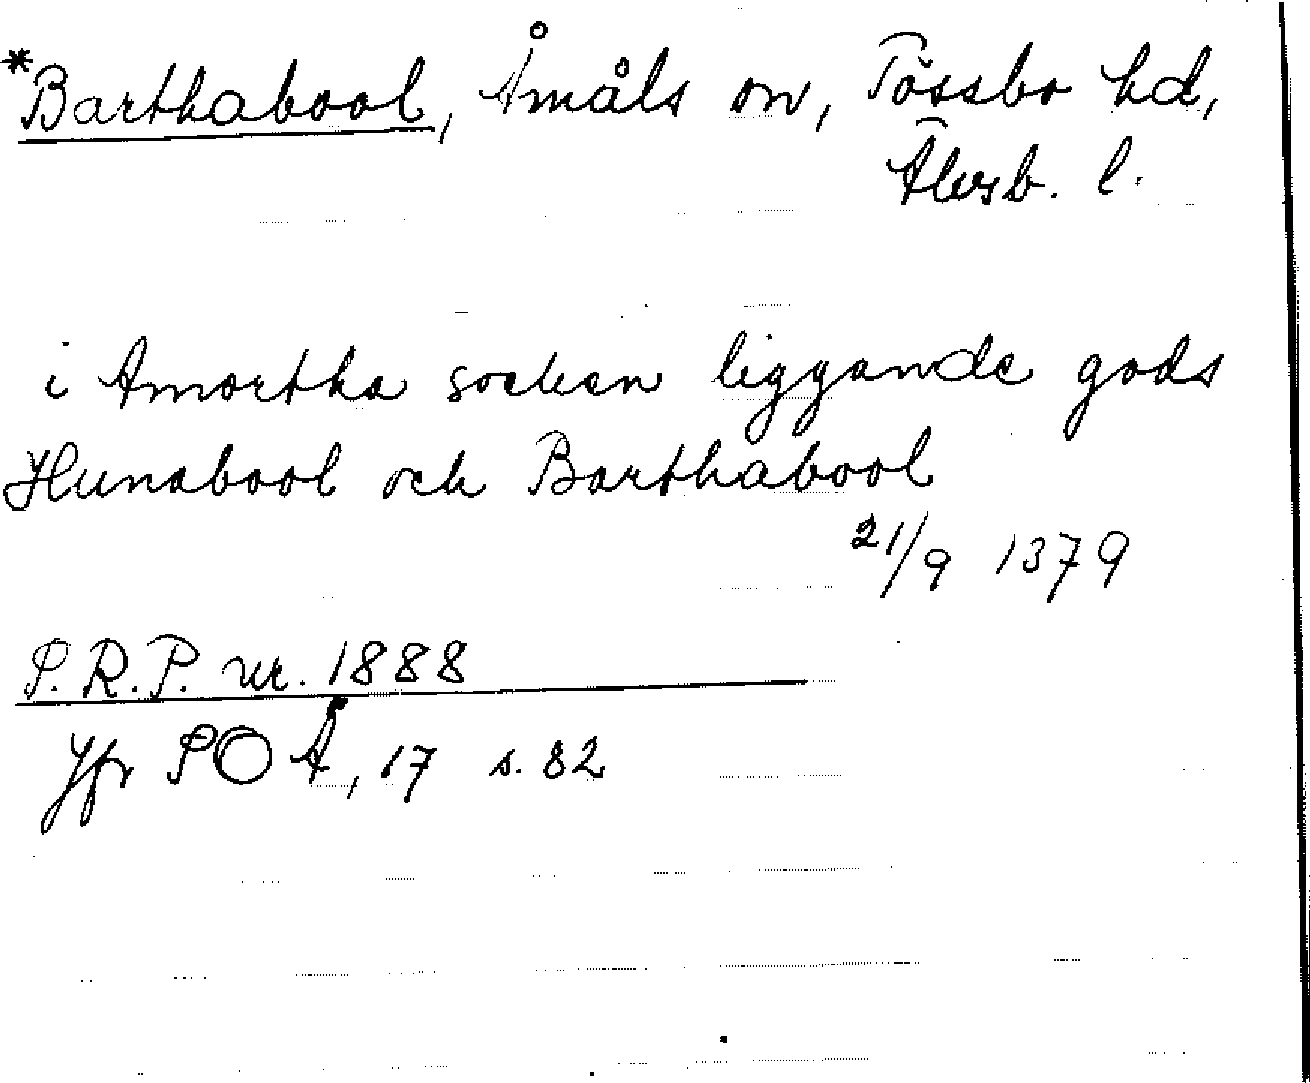 *Barthabool, Åmåls sn, Tössbo hd,
Älvsb. l.
i Amortka socken liggande gods
Hunabool och Barthabool
21/9 1379
S.R.P. nr. 1888
Jfr SOÄ, 17 s. 82